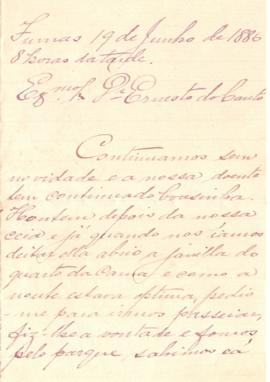 Furnas 19 de Junho de 1886
8 horas da tarde.
Exmo. Sr. Dr. Ernesto do Canto
Continuamos sem
novidade e a nossa doente
tem continuado bousinha.
Hontem depois da nossa
ceia e já quando nos iamos
deitar ella abrio a janella do
quarto da cama e como a
noute estava optima, pedio
-me para irmos passeiar,
fiz-lhe a vontade e fomos
pelo parque, sahimos cá